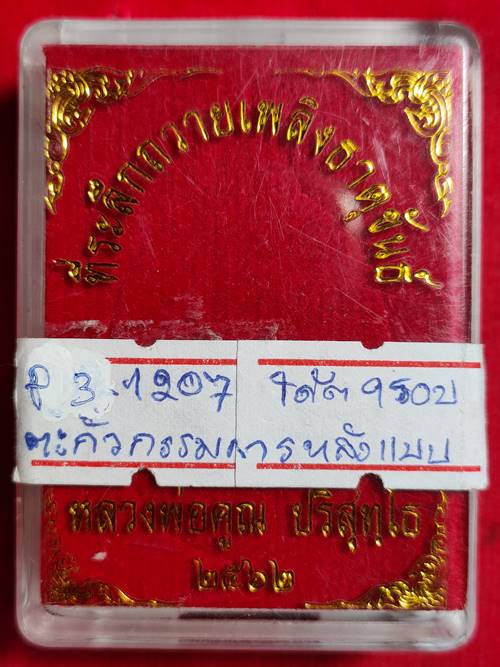 ที่ระลึกถวายเพลิงธาตุขันธ์
P. 3. 1207 โค๊ต 9 รอบ
ตะกั่วกรรมการหลังแบบ
หลวงพ่อคูณ ปริสุทฺโธ
๒๕๖๒